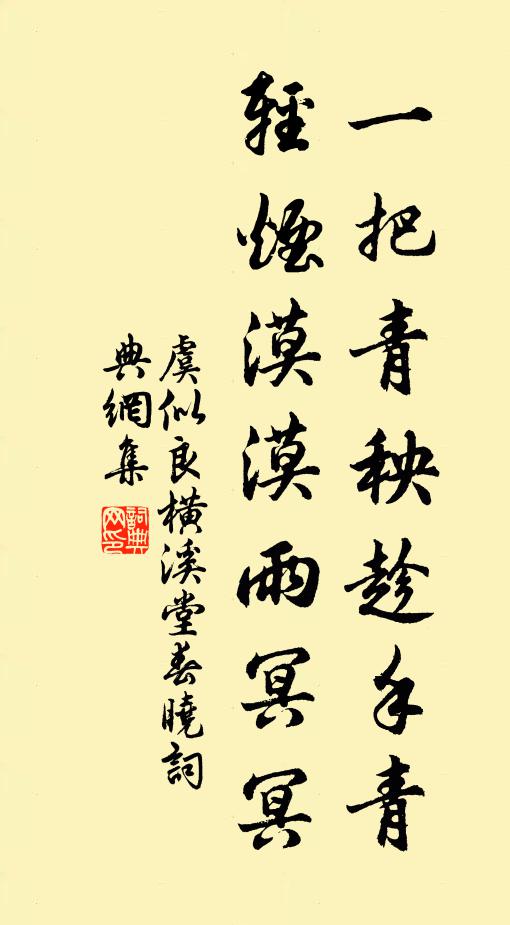 一把青秧趁手青
輕煙漠漠雨冥冥
虞似良橫溪堂春曉詞
典網集
詞典網印